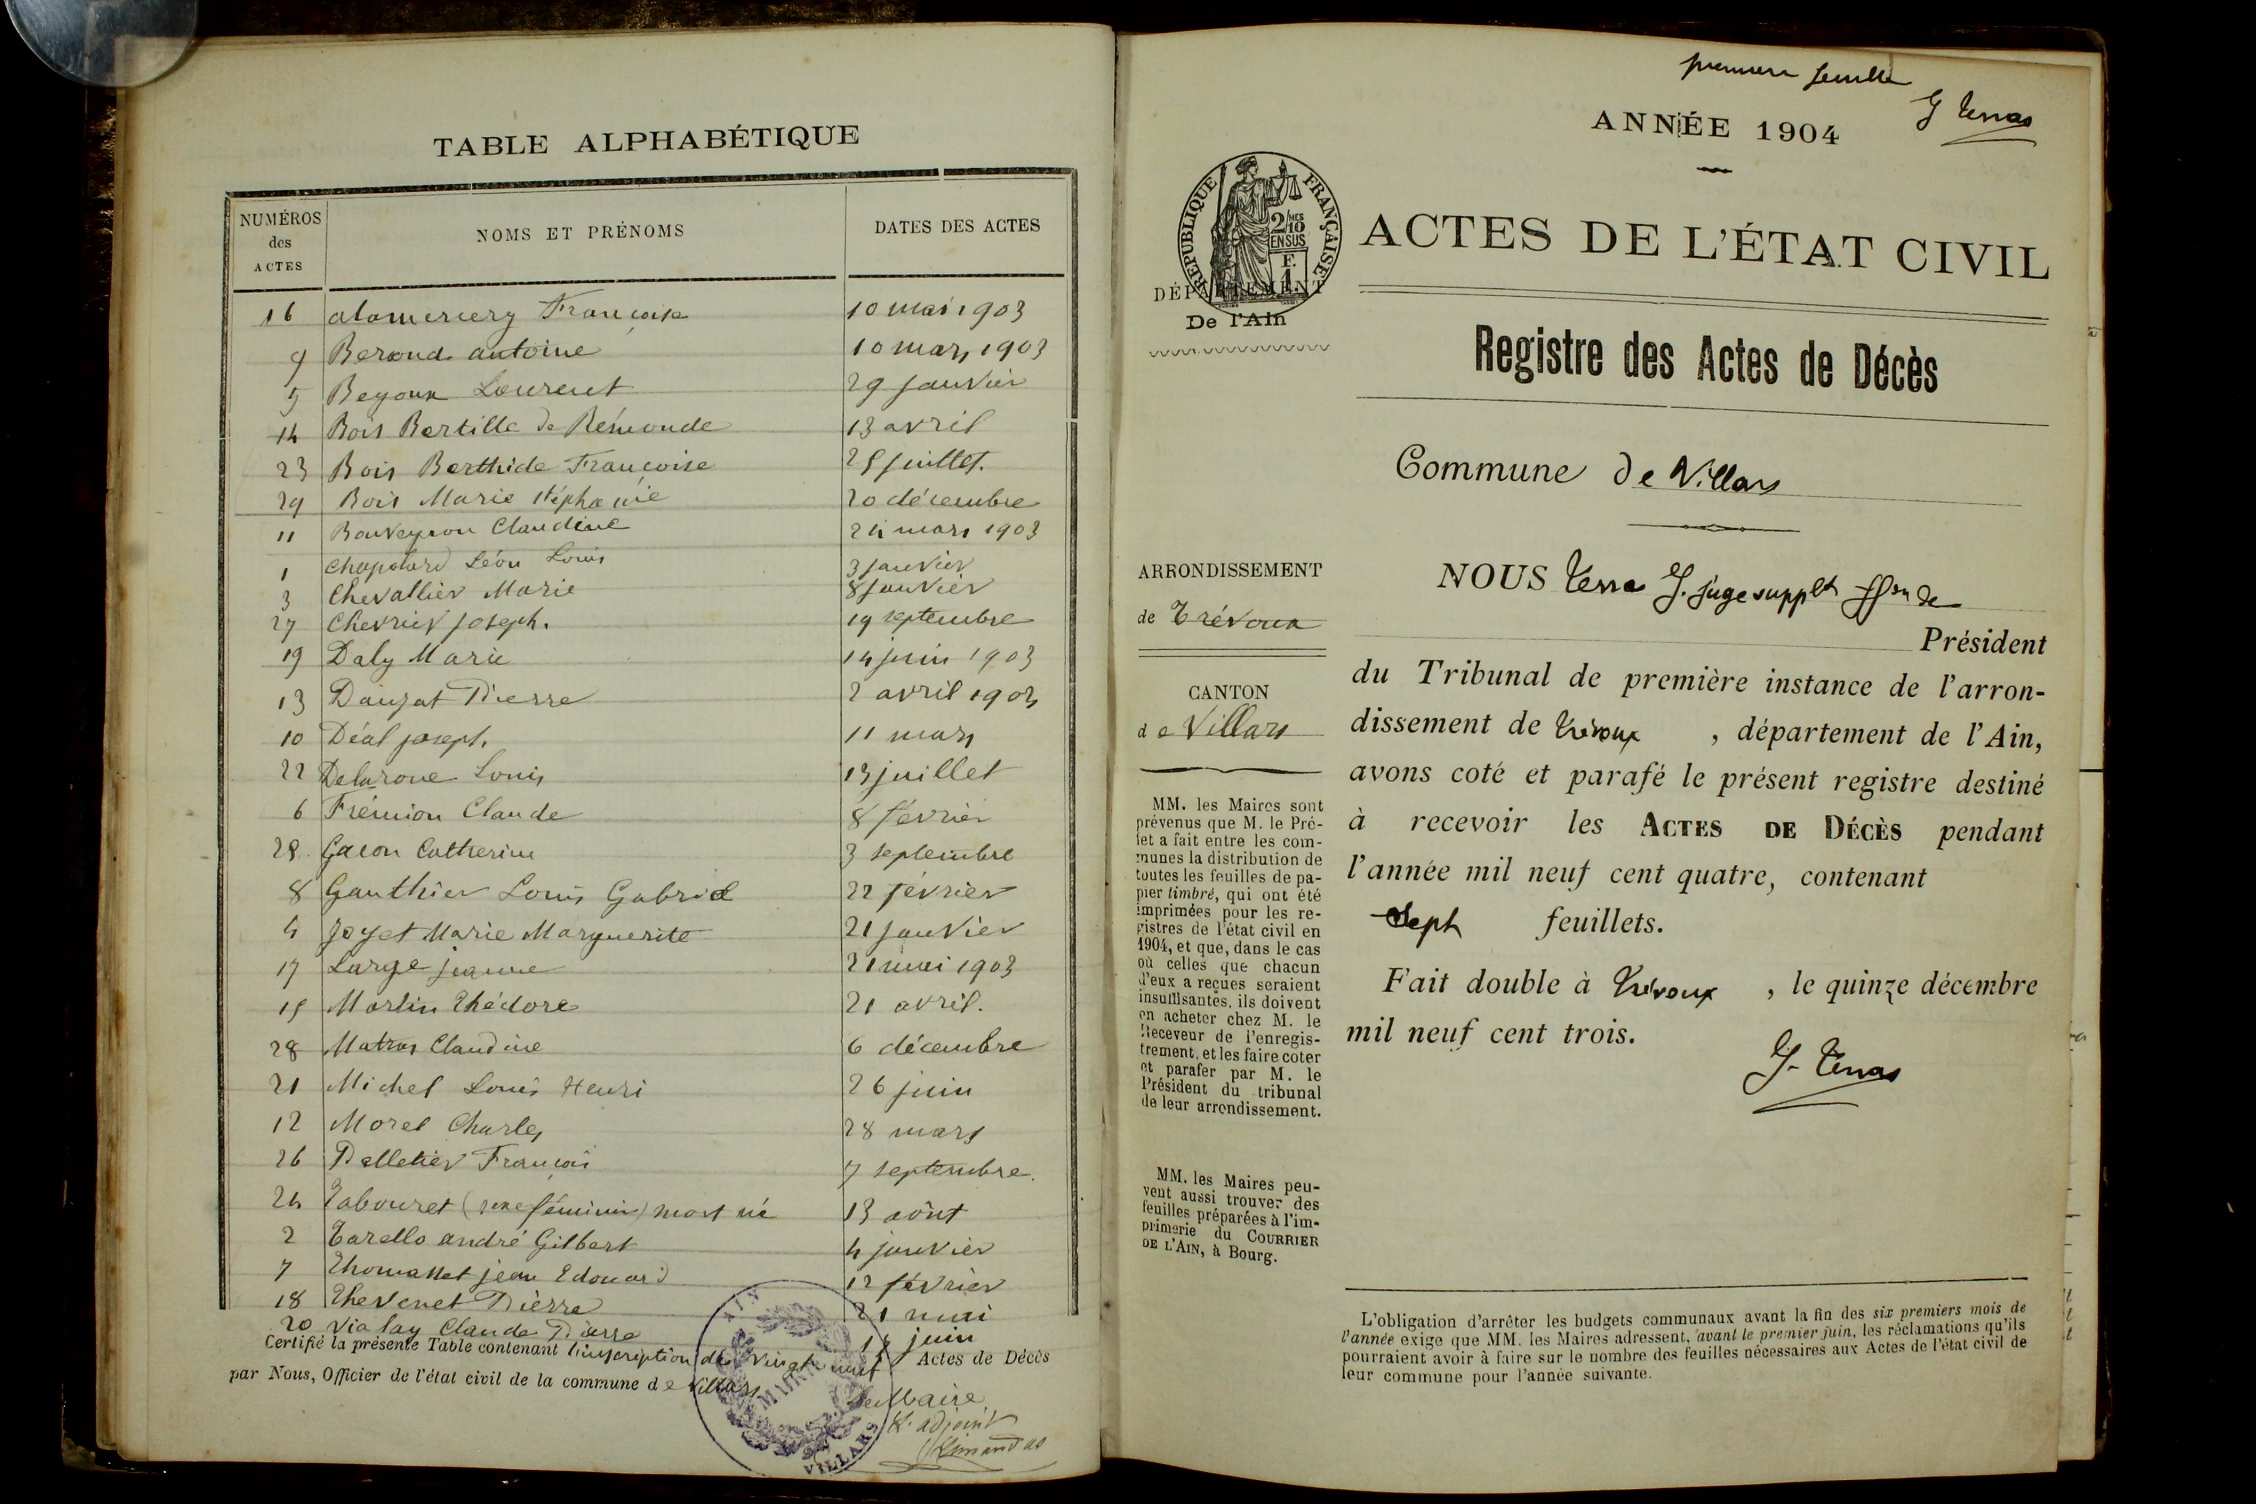 TABLE ALPHABÉTIQUE
NUMÉROS des ACTES NOMS ET PRÉNOMS DATES DES ACTES
16 Alamercery Françoise 10 mai 1903
9 Beroud antoine 10 mars 1903
5 Begoun Laurent 29 janvier
14 Bois Bertille de Rémonde 13 avril
23 Bois Berthide Françoise 25 juillet.
29 Bois Marie Stéphanie 20 décembre
11 Bouveyron Claudine 24 mars 1903
1 Chapolard Léon Louis 3 janvier
3 Chevallier Marie 8 janvier
27 Chevrier Joseph. 19 septembre
19 Daly Marie 14 juin 1903
13 Dauzat Pierre 2 avril 1903
10 Déal joseph. 11 mars
22 Delaroue Louis 13 juillet
6 Frémion Claude 8 février
25 Gacon Catherine 3 septembre
8 Gauthier Louis Gabriel 22 février
4 Joyet Marie Marguerite 21 janvier
17 Large jeanne 21 mai 1903
15 Martin Thédore 21 avril.
28 Matras Claudine 6 décembre
21 Michel Louis Henri 26 juin
12 Morel Charles 28 mars
26 Pelletier François 7 septembre.
24 Tabouret (sexe féminin) mort né 13 août
2 Tarello andré Gilbert 4 janvier
7 Thomasset jean Edouard 12 février
18 Thevenet Pierre 21 mai
20 Vialay Claude Pierre 18 juin
Certifié la présente Table contenant l'inscription de vingt neuf Actes de Décès
par Nous, Officier de l'état civil de la commune de Villars
Le Maire
adjoint
AIN
MAIRIE
VILLARS
première feuille
G Terras
ANNÉE 1904
RÉPUBLIQUE FRANÇAISE
2/10 MES
EN SUS
F.
1
DÉPARTEMENT
De l'Ain
ACTES DE L'ÉTAT CIVIL
Registre des Actes de Décès
Commune de Villars
ARRONDISSEMENT
de Trévoux
CANTON
de Villars
MM. les Maires sont
prévenus que M. le Pré-
fet a fait entre les com-
munes la distribution de
toutes les feuilles de pa-
pier timbré, qui ont été
imprimées pour les re-
gistres de l'état civil en
1904, et que, dans le cas
où celles que chacun
d'eux a reçues seraient
insuffisantes, ils doivent
en acheter chez M. le
Receveur de l'enregis-
trement, et les faire coter
et parafer par M. le
Président du tribunal
de leur arrondissement.
MM. les Maires peu-
vent aussi trouver des
feuilles préparées à l'im-
primerie du COURRIER
DE L'AIN, à Bourg.
NOUS Terras G. juge suppt ffon de
Président
du Tribunal de première instance de l'arron-
dissement de Trévoux , département de l'Ain,
avons coté et parafé le présent registre destiné
à recevoir les ACTES DE DÉCÈS pendant
l'année mil neuf cent quatre, contenant
Sept feuillets.
Fait double à Trévoux , le quinze décembre
mil neuf cent trois.
G. Terras
L'obligation d'arrêter les budgets communaux avant la fin des six premiers mois de
l'année exige que MM. les Maires adressent, avant le premier juin, les réclamations qu'ils
pourraient avoir à faire sur le nombre des feuilles nécessaires aux Actes de l'état civil de
leur commune pour l'année suivante.